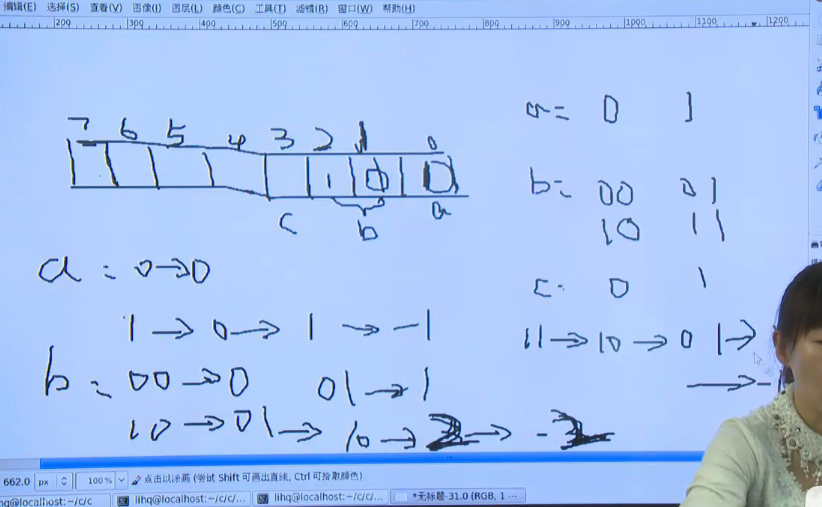 编辑(E) 选择(S) 查看(V) 图像(I) 图层(L) 颜色(C) 工具(T) 滤镜(R) 窗口(W) 帮助(H)
200 300 400 500 600 700 800 900 1000 1100 1200
7 6 5 4 3 2 1 0
1 0 0
c b a
a= 0 1
b= 00 01
10 11
c= 0 1
a: 0→0
1→0→1→-1
11→10→01→
→-1
b= 00→0 01→1
10→01→10→2→-2
662.0 px 100% 点击以涂画 (尝试 Shift 可画出直线, Ctrl 可拾取颜色)
nq@localhost:~/c/c lihq@localhost:~/c/c/... lihq@localhost:~/c/c/... *无标题-31.0 (RGB, 1 ...